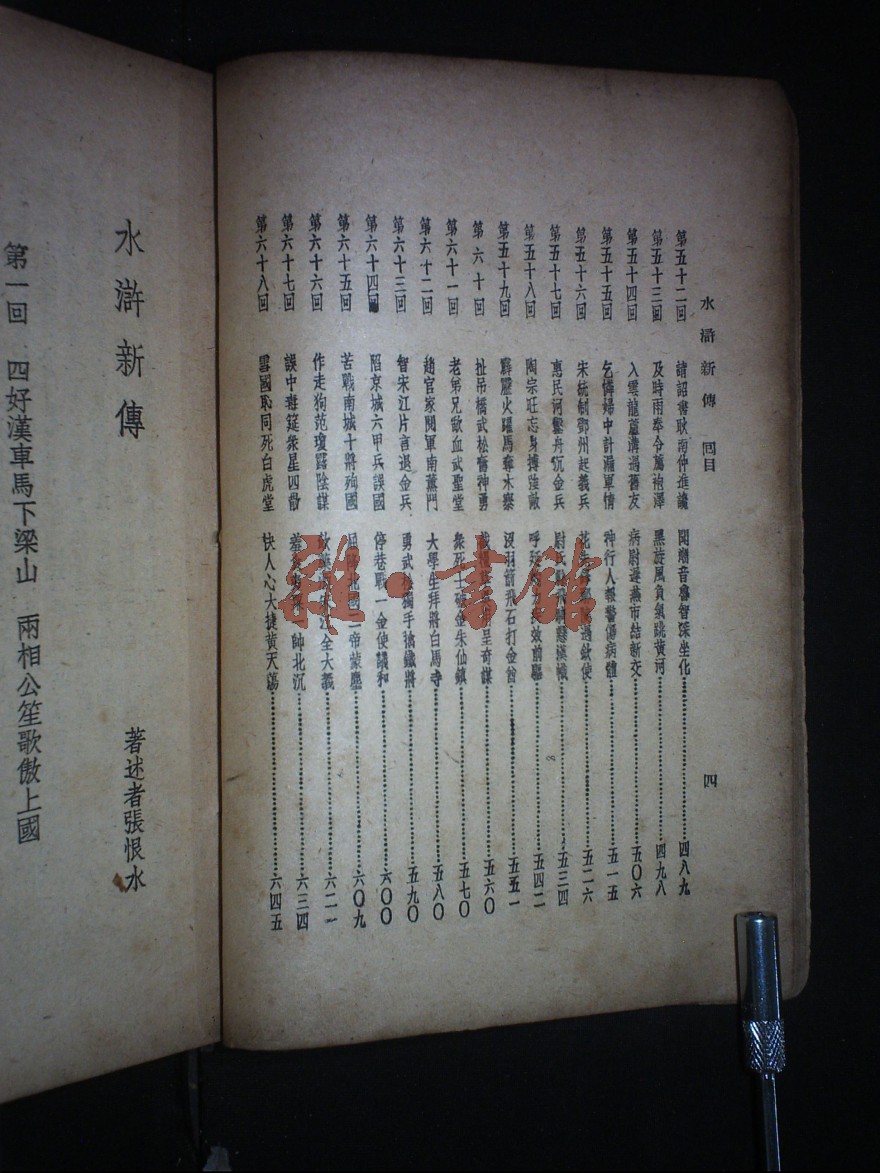 水滸新傳 囘目
四
第五十二回 請詔書耿南仲進讒 聞潮音魯智深坐化 四八九
第五十三回 及時雨奉令薦袍澤 黑旋風負氣跳黃河 四九八
第五十四回 入雲龍蘆溝遇舊友 病尉遲燕市結新交 五〇六
第五十五回 乞憐婦中計漏軍情 神行人報警傷病體 五一五
第五十六回 宋統制鄆州起義兵 五二六
第五十七回 惠民河鑿舟沉金兵 五三四
第五十八回 陶宗旺忘身摶陸敵 五四二
第五十九回 霹靂火躍馬奪木寨 沒羽箭飛石打金酋 五五一
第六十回 扯吊橋武松奮神勇 呈奇謀 五六〇
第六十一回 老弟兄歃血武聖堂 衆死士破金朱仙鎮 五七〇
第六十二回 趙官家閱軍南薰門 大學生拜將白馬寺 五八〇
第六十三回 智宋江片言退金兵 勇武松獨手擒鐵將 五九〇
第六十四回 陷京城六甲兵誤國 停巷戰一金使議和 六〇〇
第六十五回 苦戰南城十將殉國 二帝蒙塵 六〇九
第六十六回 作走狗范瓊露陰謀 江全大義 六二一
第六十七回 誤中毒筵衆星四散 帥北沉 六三四
第六十八回 雪國恥同死白虎堂 快人心大捷黃天蕩 六四五
水滸新傳
著述者張恨水
第一回 四好漢車馬下梁山 兩相公笙歌傲上國
雜·書館